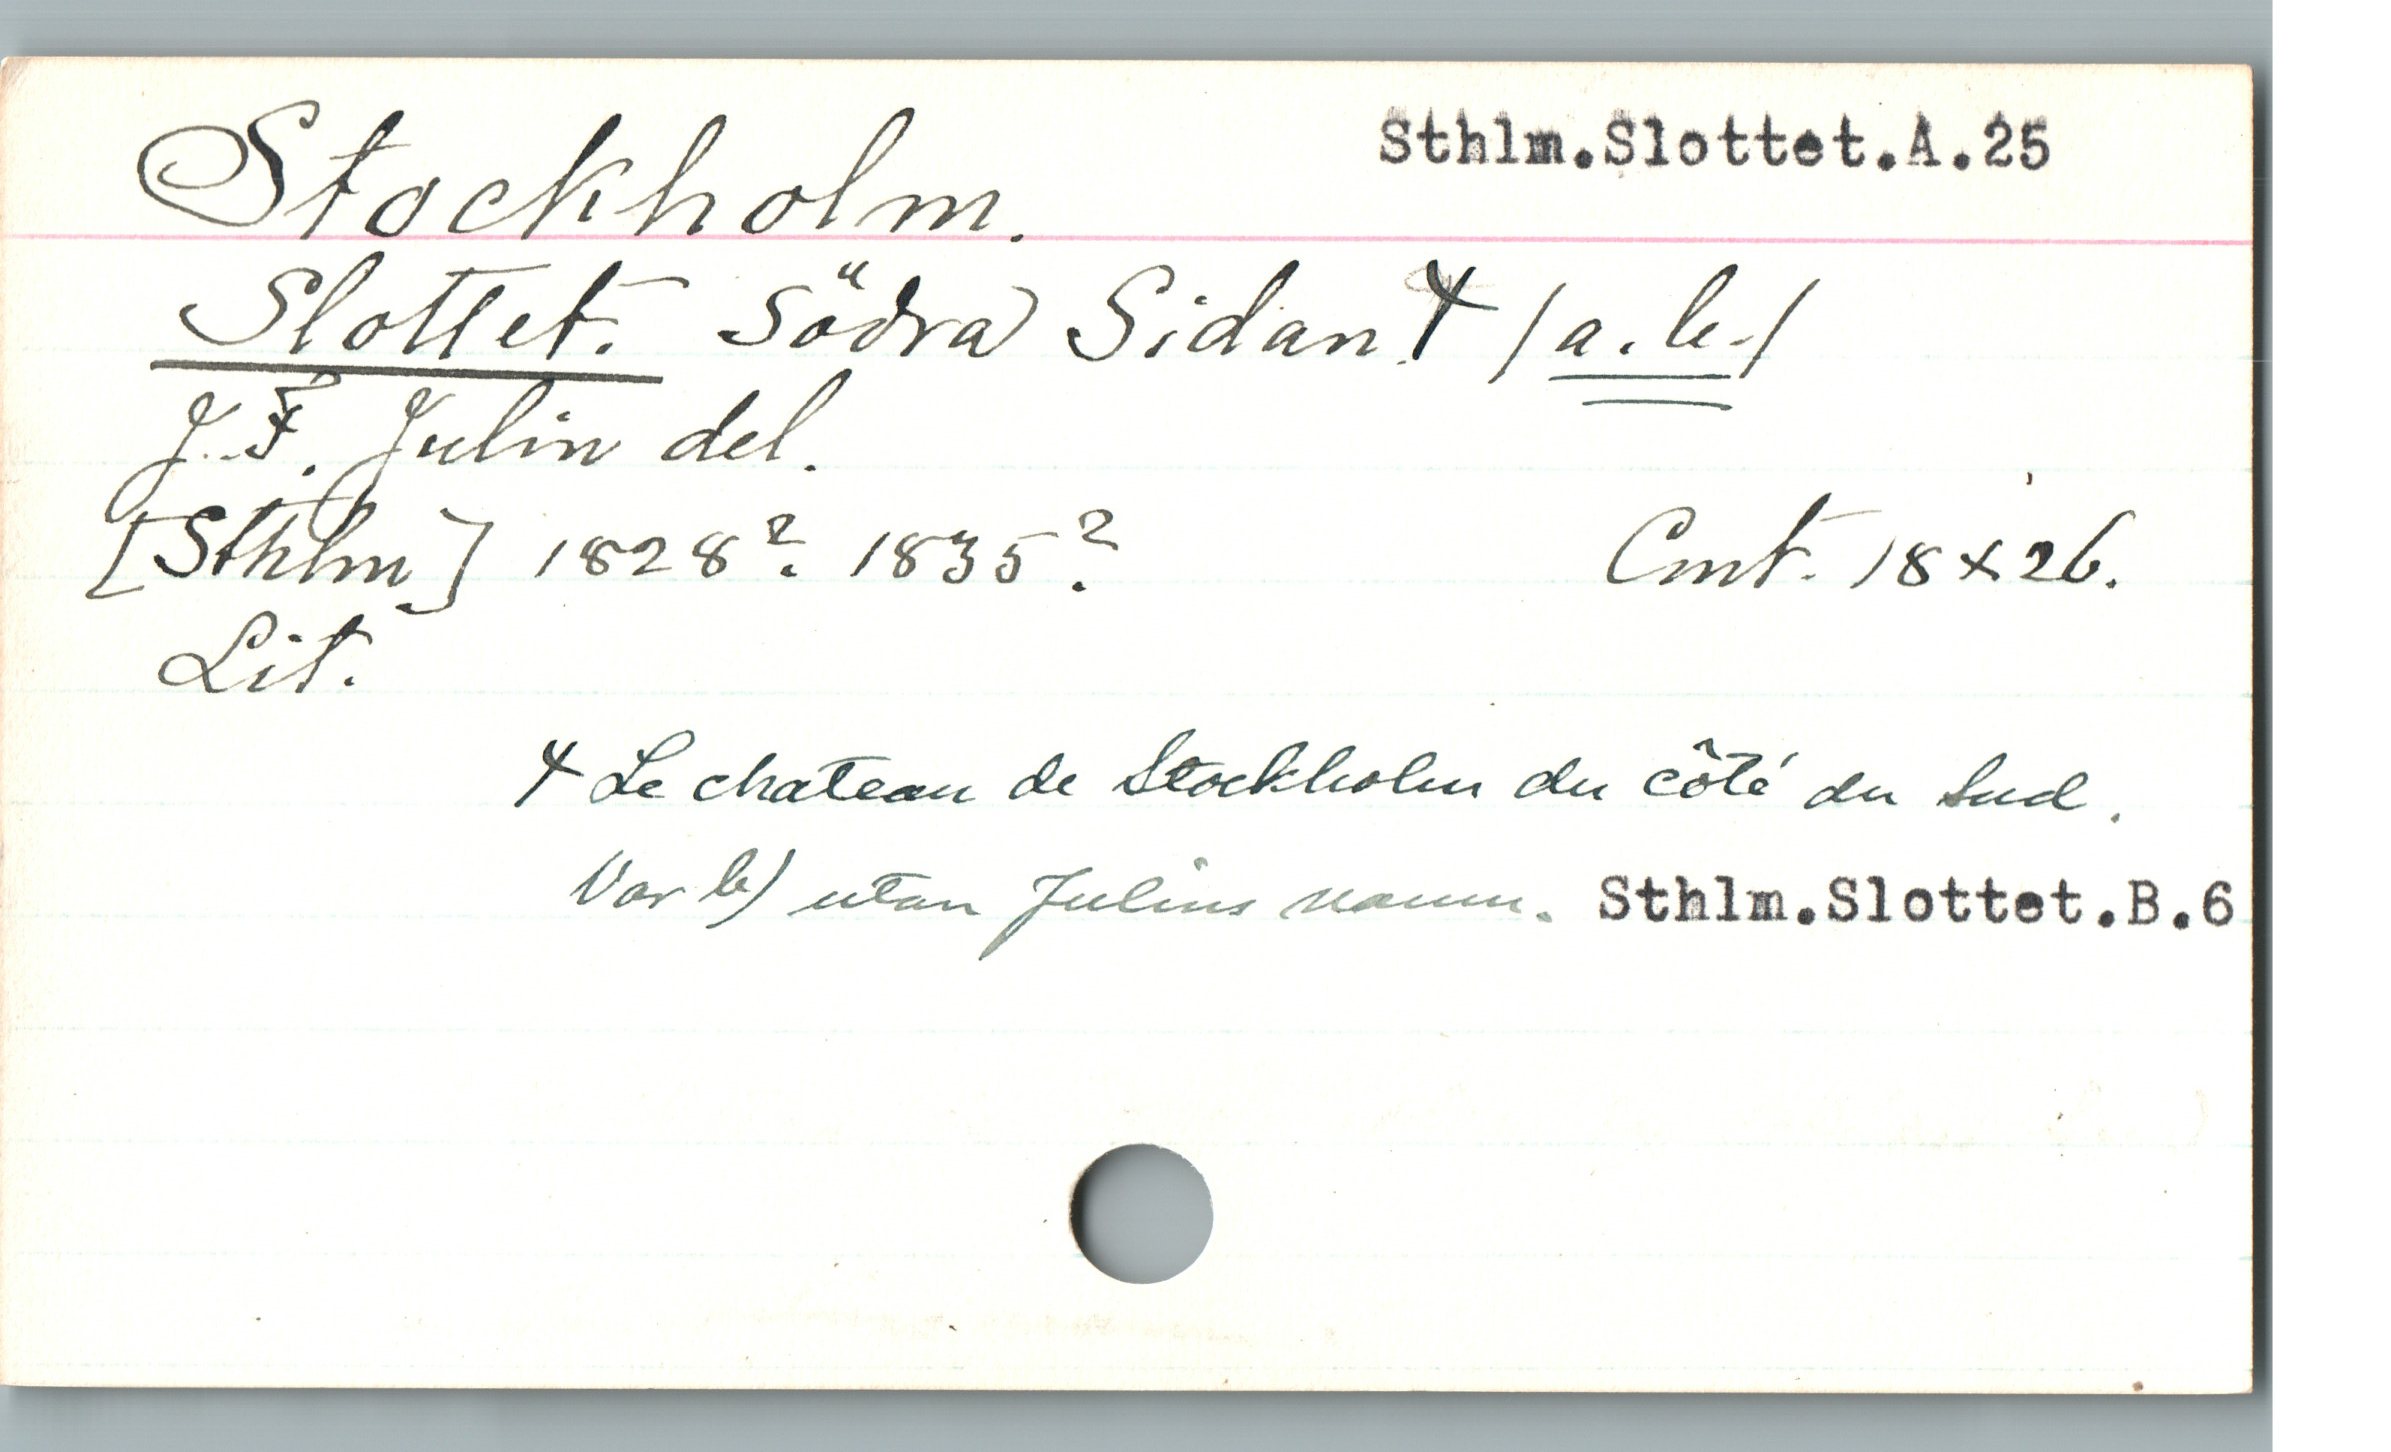 Stockholm. Sthlm.Slottet.A.25
Slottet. Södra Sidan. + /a. b./
J. F. Julin del.
[Sthlm] 1828? 1835? Cmt. 18 x 26.
Lit.
+ Le chateau de Stockholm du côté du Sud.
Var b) utan Julins namn. Sthlm.Slottet.B.6